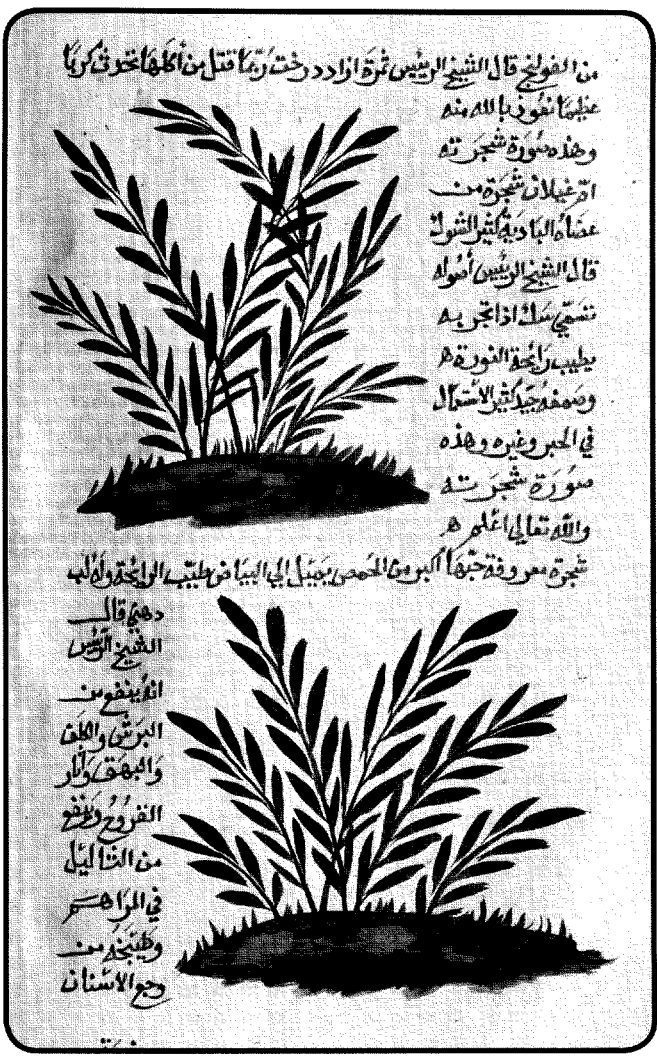 من القولنج قال الشيخ الرئيس ثمرة ازاددرخت ربما قتل من أكلها تحدث كربا
عظيما نعوذ بالله منه
وهذه صورة شجرته
ام غيلان شجرة من
عضاه البادية كثير الشوك
قال الشيخ الرئيس أصوله
تسمي سك اذا تجر به
يطيب رايحة النورة ه
وصمغه جيد كثير الاستعمال
في الحبر وغيره وهذه
صورة شجرته
والله تعالي اعلم ه
شجرة معروفة حبها أكبر من الحمص يميل الي البياض طيب الرايحة وله لب
دهني قال
الشيخ الرئيس
انه ينفع من
البرش والكلف
والبهق وآثار
القروح وينفع
من الثاليل
في المراهم
وطبيخه من
وجع الاسنان